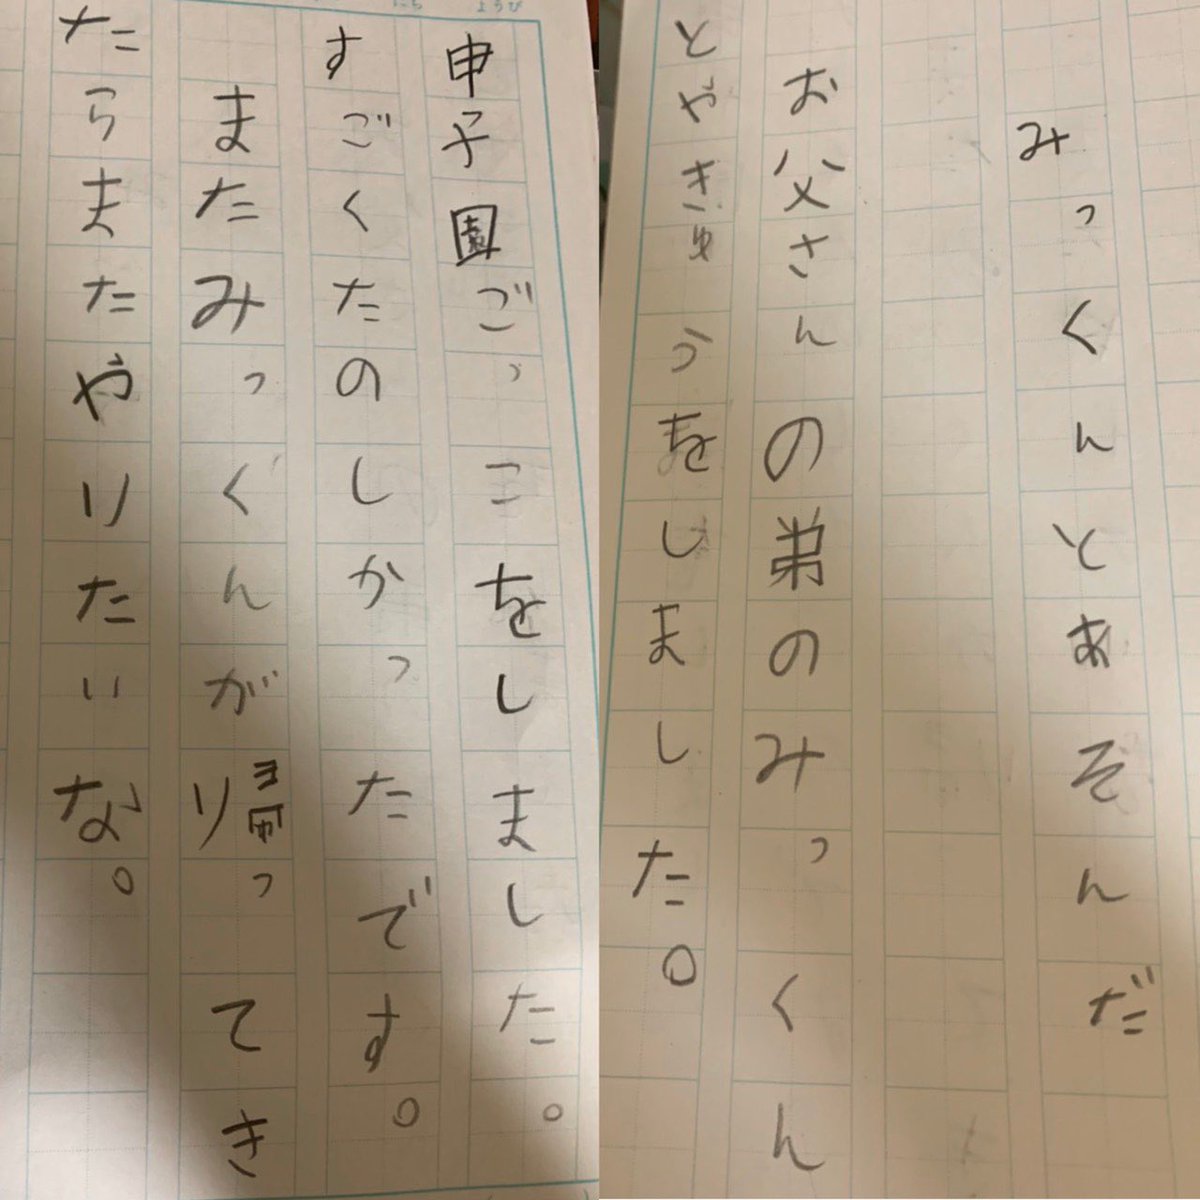 みっくんとあそんだ
お父さんの弟のみっくん
とやきゅうをしました。
にち
ようび
申子園ごっこをしました。
すごくたのしかったです。
またみっぐんが帰ってき
たらまたやりたいな。